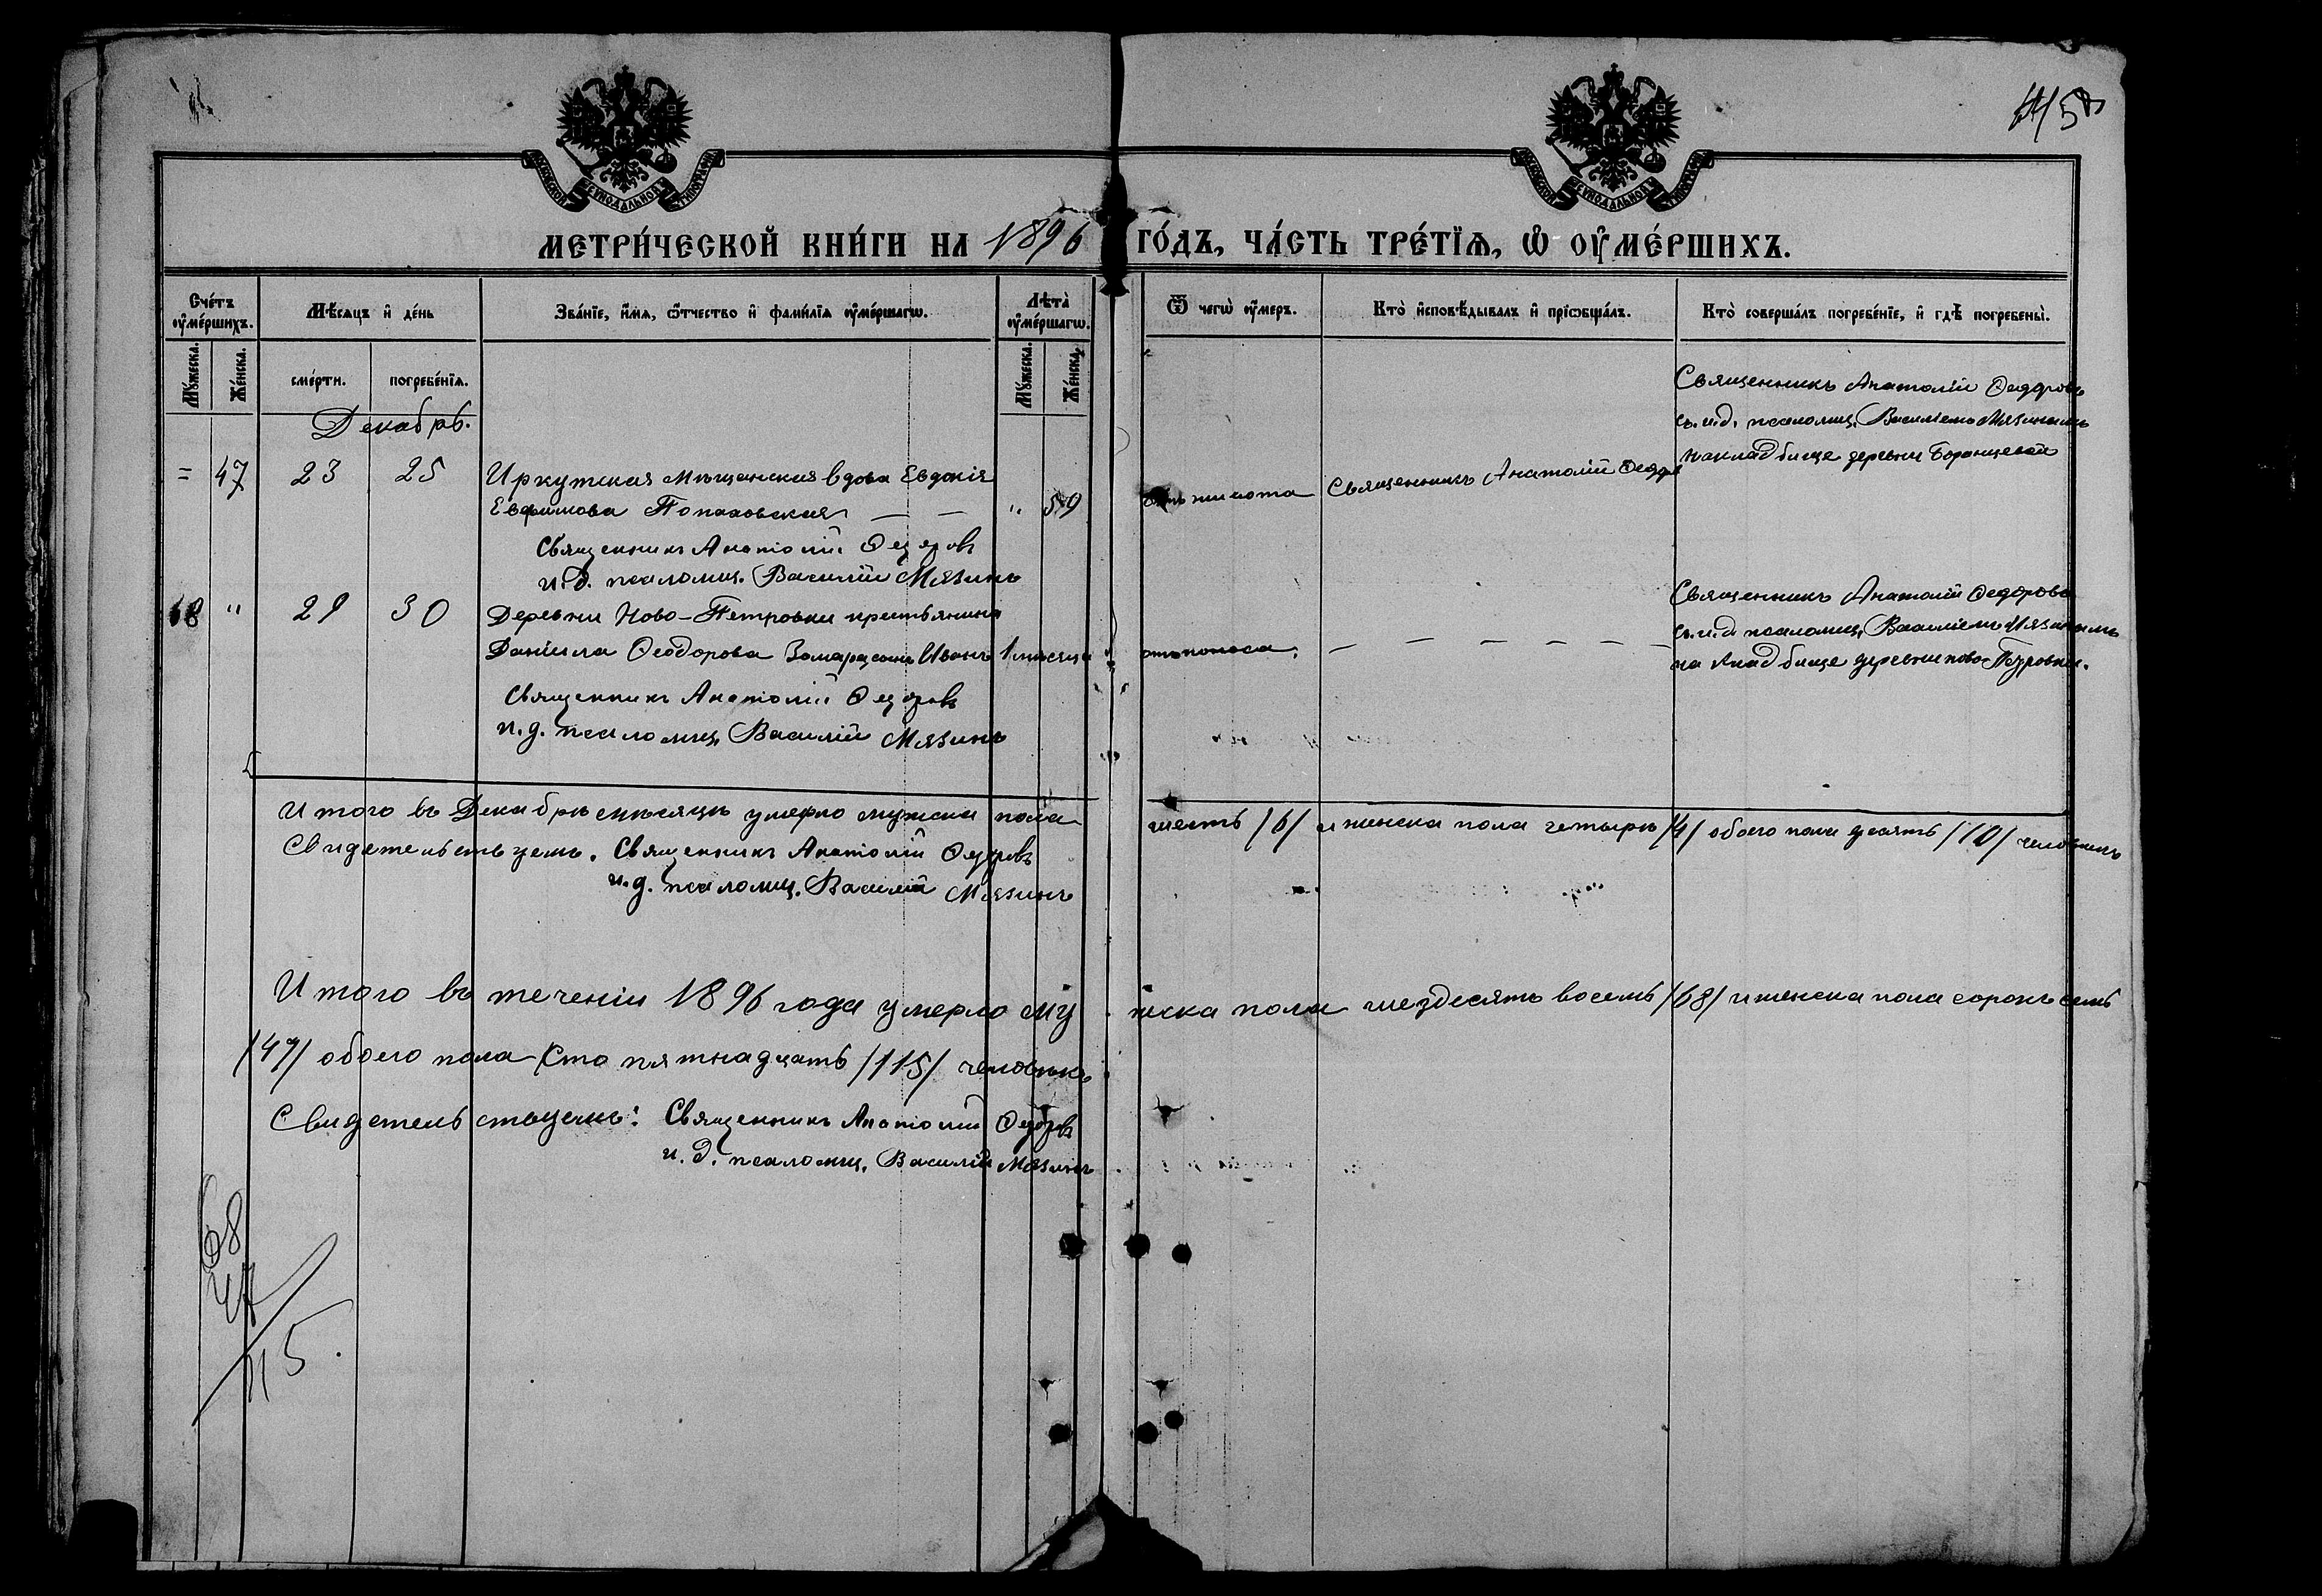 58
МЕТРИ́ЧЕСКОЙ КНИ́ГИ НА 1896 ГО́ДЪ, ЧА́СТЬ ТРЕ́ТІѦ, Ѡ ОУ҆МЕ́РШИХЪ.
Сче́тъ оу҆ме́ршихъ.
Мѣ́сяцъ и҆ де́нь
Зва́нїе, и҆́мѧ, ѻ҆́тчество и҆ фами́лїѧ оу҆ме́ршагѡ.
Лѣта̀ оу҆ме́ршагѡ.
Ѿ чегѡ̀ оу҆́меръ.
Кто̀ и҆сповѣ́дывалъ и҆ прїѡбща́лъ.
Кто̀ соверша́лъ погребе́нїе, и҆ гдѣ̀ погребены̀.
Мꙋ́жеска.
Же́нска.
сме́рти.
погребе́нїѧ.
Мꙋ́жеска.
Же́нска.
Декабрь.
= 47 23 25 Иркутская Мѣщанская вдова Евдокія
Евфимова " 59
Священникъ Анатолій Ѳедоровъ
и.д. псаломщ. Василій Мязинъ
Священникъ Анатолій Ѳедоров
Священникъ Анатолій Ѳедоровъ
съ и.д. псаломщ. Василіемъ Мязинымъ
на кладбище деревни
68 " 29 30 Деревни Ново-Петровки крестьянина
Даніила Ѳеодорова сынъ Иванъ 1 мѣсяца
отъ поноса.
Священникъ Анатолій Ѳедоровъ
и.д. псаломщ. Василій Мязинъ
Священникъ Анатолій Ѳедоровъ
съ и.д. псаломщ. Василіемъ Мязинымъ
на кладбище деревни Ново-Петровки.
Итого въ Декабрѣ мѣсяцѣ умерло мужска пола шесть /6/ и женска пола четыре /4/ обоего пола десять /10/ человѣкъ
Свидетельствуемъ. Священникъ Анатолій Ѳедоровъ
и.д. псаломщ. Василій Мязинъ
Итого въ теченіи 1896 года умерло мужска пола шездесять восемь /68/ и женска пола сорокъ семь
/47/ обоего пола Сто пятнадцать /115/ человѣкъ
Свидетельствуемъ: Священникъ Анатолій Ѳедоровъ
и.д. псаломщ. Василій Мязинъ
68
47
115.